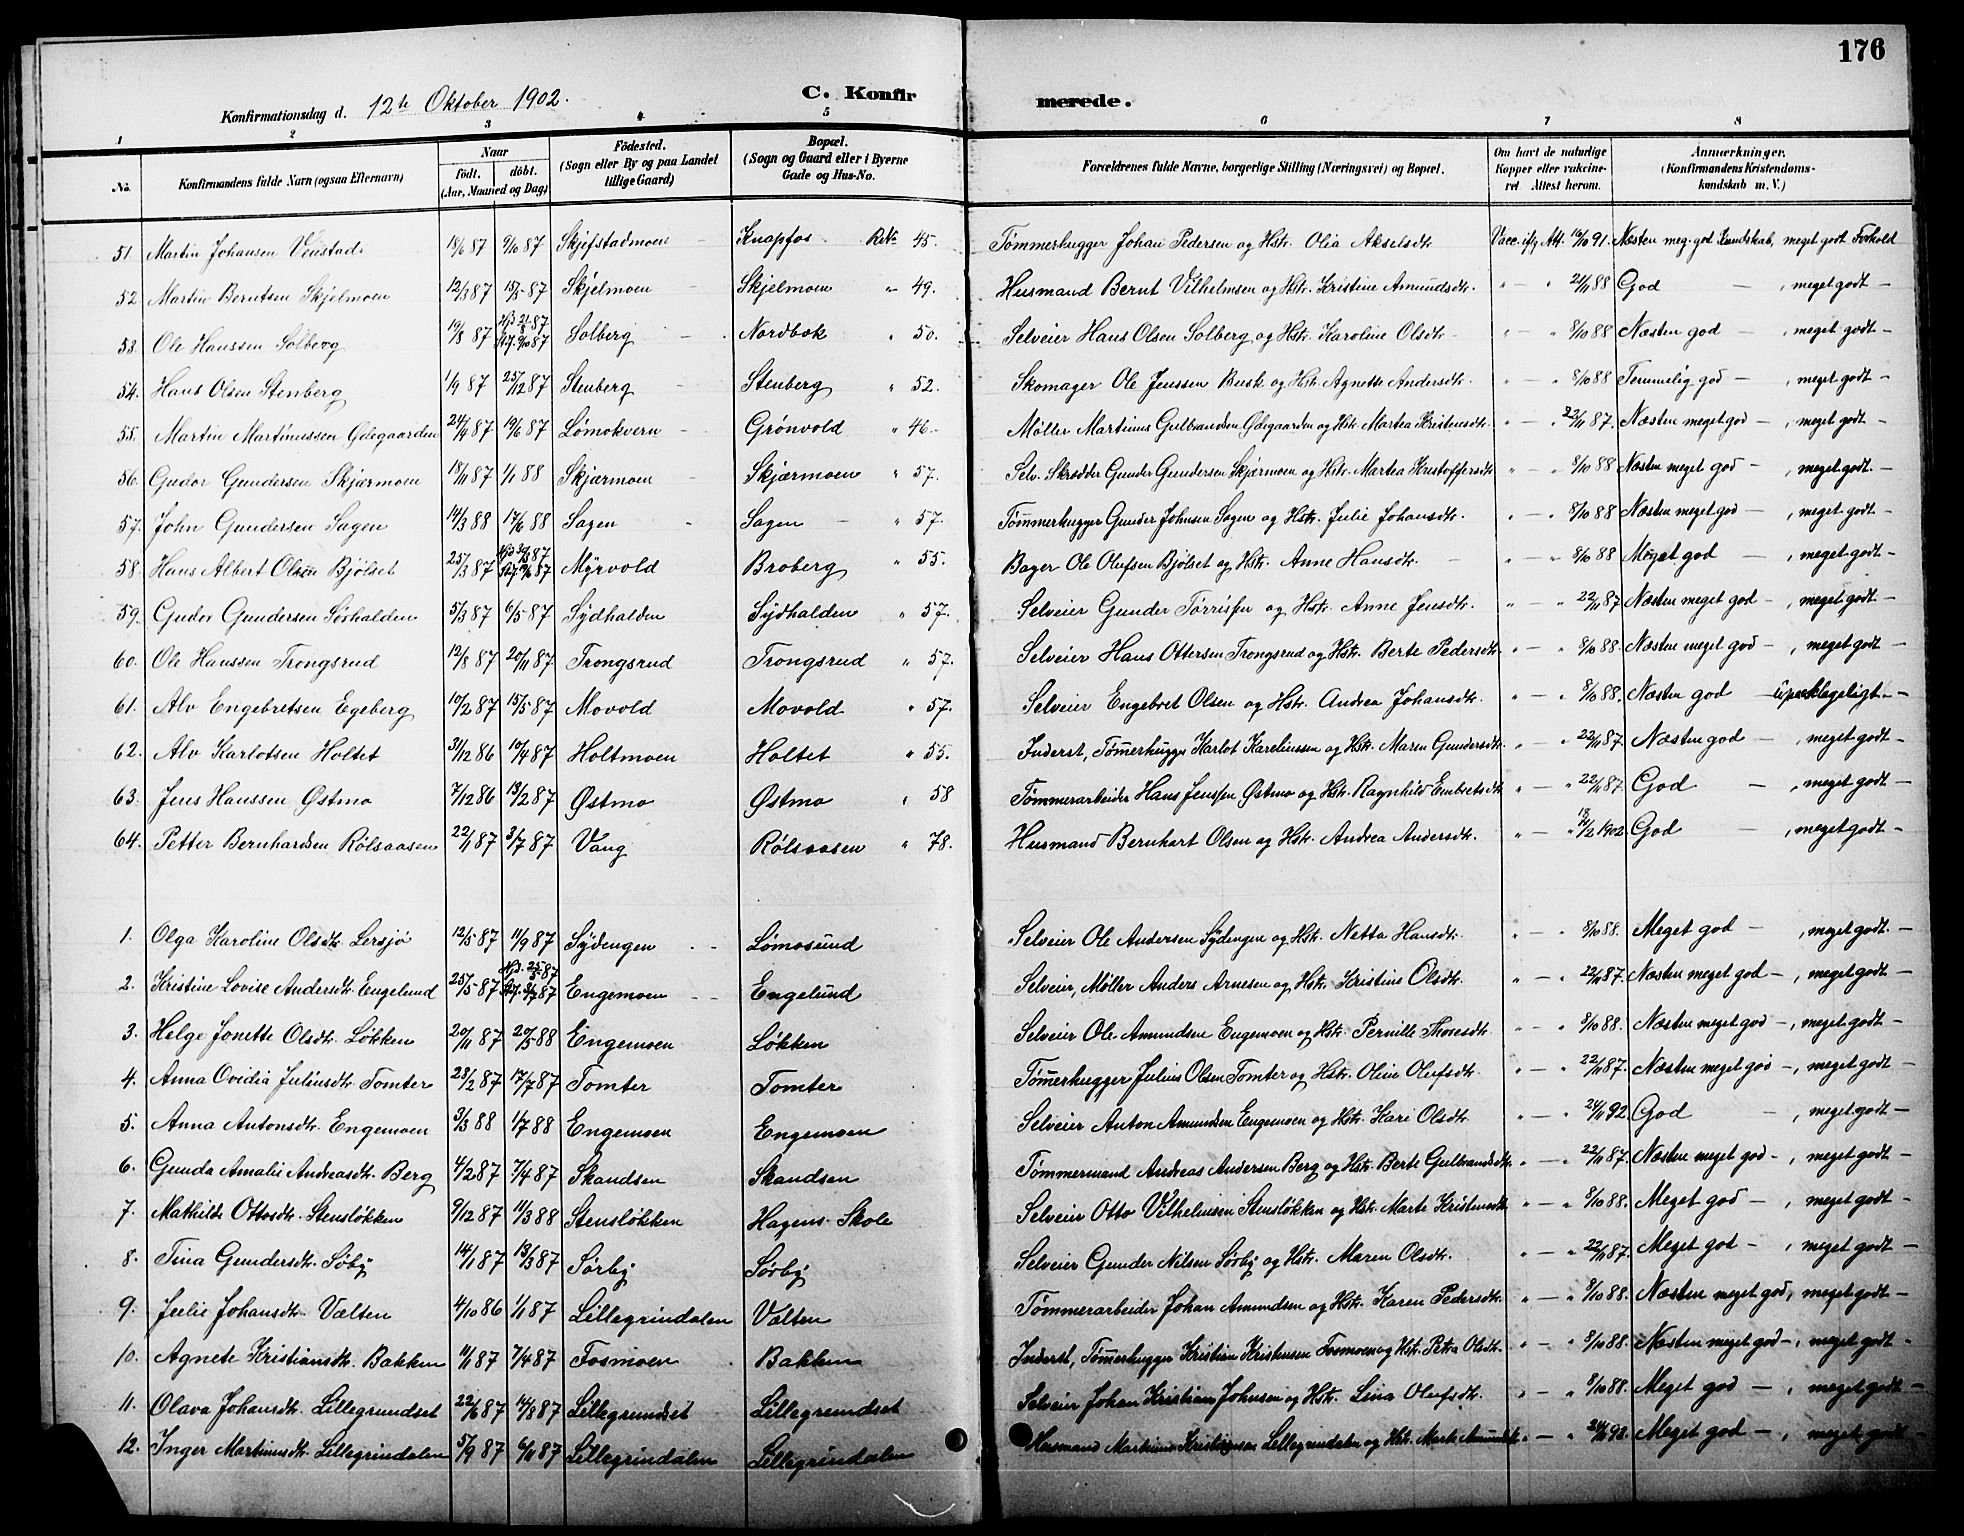 176
Konfirmationsdag d. 12te Oktober 1902. C. Konfirmerede.
1 2 3 4 5 6 7 8
No. Konfirmandens fulde Navn (ogsaa Efternavn) Naar født. døbt. (Aar, Maaned og Dag) Fødested. (Sogn eller By og paa Landet tillige Gaard) Bopæl. (Sogn og Gaard eller i Byerne Gade og Hus-No. Forældrenes fulde Navne, borgerlige Stilling (Næringsvei) og Bopæl. Om havt de naturlige Kopper eller vakcineret Attest herom. Anmærkninger, (Konfirmandens Kristendomskundskab m. V.)
51. Martin Johansen Venstad 18/6 87 9/10 87 Skjefstadmoen Knapfos 45. Tømmerhugger Johan Pedersen og Hstr. Olia Akselsdtr. Vacc. iflg Att. 16/10 91. Næsten meg. god Kundskab, meget godt Forhold
52. Martin Berntsen Skjelmoen 12/3 87 15/5 87 Skjelmoen Skjelmoen " 49. Husmand Bernt Vilhelmsen og Hstr. Kristine Amundsdtr. " — " 21/11 88 God — , meget godt —
53. Ole Hanssen Solberg 19/8 87 9/10 87 Solberg Nordbæk " 50. Selveier Hans Olsen Solberg og Hstr. Karoline Olsdtr. " — " 8/10 88 Næsten god — , meget godt —
54. Hans Olsen Stenberg 1/9 87 25/12 87 Stenberg Stenberg " 52. Skomager Ole Jenssen Busk og Hstr. Agnette Andersdtr. " — " 8/10 88 Temmelig god — , meget godt —
55. Martin Martinussen Ødegaarden 24/4 87 19/6 87 Lømokvern Grønvold " 46. Møller Martinus Gulbrandsen Ødegaarden og Hstr. Martea Kristensdtr. " — " 22/11 87. Næsten meget god — , meget godt —
56. Gudor Gundersen Skjærmoen 18/11 87 1/1 88 Skjærmoen Skjærmoen " 57. Selv. Skrædder Gunder Gundersen Skjærmoen og Hstr. Martea Kristoffersdtr. " — " 8/10 88 Næsten meget god — , meget godt. —
57. John Gundersen Sagen 14/3 88 17/6 88 Sagen Sagen — " 57. Tømmerhugger Gunder Johnsen Sagen og Hstr. Julie Johansdtr. " — " 8/10 88 Næsten meget god — , meget godt —
58. Hans Albert Olsen Bjølset 25/3 87 Myrvold Broberg " 55. Bager Ole Olufsen Bjølset og Hstr. Anne Hansdtr. " — " 8/10 88 Meget god — , meget godt —
59. Gudor Gundersen Sørhalden 5/3 87 6/5 87 Sydhalden Sydhalden " 57. Selveier Gunder Tørrisen og Hstr. Anne Jensdtr. " — " 22/11 87 Næsten meget god — , meget godt —
60. Ole Hanssen Trongsrud 12/8 87 20/11 87 Trongsrud Trongsrud " 57. Selveier Hans Ottersen Trongsrud og Hstr. Berte Pedersdtr. " — " 8/10 88. Næsten meget god — , meget godt —
61. Alv Engebretsen Egeberg 10/2 87 15/5 87 Movold Movold " 57. Selveier Engebret Olsen og Hstr. Andrea Johansdtr. " — " 8/10 88. Næsten god — upaaklageligt —
62. Alv Karlotsen Holtet 31/12 86 10/4 87 Holtmoen Holtet " 55. Inderst, Tømmerhugger Karlot Kareliussen og Hstr. Maren Gundersdtr. " — " 22/11 87. Næsten god — , meget godt —
63. Jens Hanssen Østmo 7/12 86 13/2 87 Østmo Østmo " 58 Tømmerarbeider Hans Jenssen Østmo og Hstr. Ragnhild Embretsdtr. " — " 22/11 87. God — , meget godt —
64. Petter Bernhardsen Rølsaasen 22/1 87 3/7 87 Vang Rølsaasen " 78. Husmand Bernhart Olsen og Hstr. Andrea Andersdtr. " — " 1902. God — , meget godt —
1. Olga Karoline Olsdtr. Lersjø 12/5 87 11/9 87 Sydengen Lømosund Selveier Ole Andersen Sydengen og Hstr. Netta Hansdtr. " — " 8/10 88. Meget god — , meget godt. —
2. Kristine Lovise Andersdtr. Engelund 25/5 87 Engemoen Engelund Selveier, Møller Anders Arnesen og Hstr. Kristine Olsdtr. " — " 22/11 87. Næsten meget god — , meget godt —
3. Helge Jonette Olsdtr. Løkken 20/11 87 20/5 88 Engemoen Løkken Selveier Ole Amundsen Engemoen og Hstr. Pernille Thoresdtr. " — " 8/10 88. Næsten meget god — , meget godt —
4. Anna Ovidia Juliusdtr. Tomter 23/2 87 17/7 87 Tomter Tomter Tømmerhugger Julius Olsen Tomter og Hstr. Oline Olufsdtr. " — " 22/11 87. Næsten meget god — , meget godt —
5. Anna Antonsdtr. Engemoen 3/3 88 1/7 88 Engemoen Engemoen Selveier Anton Amundsen Engemoen og Hstr. Kari Olsdtr. " — " 24/11 92. God — , meget godt —
6. Gunda Amalie Andreasdtr. Berg 4/2 87 7/4 87 Skandsen Skandsen Tømmermand Andreas Andersen Berg og Hstr. Berte Gulbrandsdtr. " — " 22/11 87. Næsten meget god — , meget godt —
7. Mathilde Ottosdtr. Stensløkken 9/12 87 11/3 88 Stensløkken Hagens Skole Selveier Otto Vilhelmsen Stensløkken og Hstr. Marte Kristensdtr. " — " 8/10 88. Meget god — , meget godt —
8. Tina Gundersdtr. Søby 14/1 87 13/3 87 Sørby Sørby Selveier Gunder Nilsen Sørby og Hstr. Maren Olsdtr. " — " 22/11 87. Meget god — , meget godt —
9. Julie Johansdtr. Vælten 4/10 86 1/1 87 Lillegrindalen Vælten Tømmerarbeider Johan Amundsen og Hstr. Karen Pedersdtr. " — " 8/10 88. Næsten meget god, meget godt —
10. Agnete Kristiansdtr. Bakken 11/1 87 7/4 87 Fosmoen Bakken Inderst, Tømmerhugger Kristian Kristensen Fosmoen og Hstr. Petra Olsdtr. " — " 8/10 88. Næsten meget god —, meget godt —
11. Olava Johansdtr. Lillegrundset 22/6 87 14/8 87 Lillegrundset Lillegrundset Selveier Johan Kristian Johnsen og Hstr. Lina Olufsdtr. " — " 8/10 88. Meget god — , meget godt —
12. Inger Martinusdtr. Lillegrindalen 5/9 87 6/11 87 Lillegrindalen Lillegrindalen Husmand Martinus Kristiansen Lillegrindalen og Hstr. Marte " — " Meget god — , meget godt